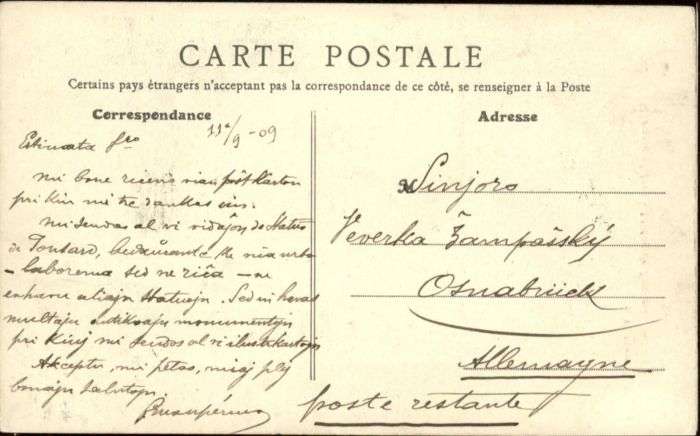 CARTE POSTALE
Certains pays étrangers n'acceptant pas la correspondance de ce côté, se renseigner à la Poste
Correspondance
11/9-09
Estimata Sro
mi bone ricevis vian postkarton
pri kiu mi tre dankas vin.
mi sendas al vi vidaĵon de statuo
de Ponsard, bedaŭrante ke nia urbo
- laborema sed ne riĉa - ne
enhavu aliajn statuojn. Sed ni havas
multajn antikvajn monumentojn
pri kiuj mi sendos al vi ilustrkartojn
Akceptu, mi petas, miaj plej
bonajn salutojn.
Adresse
Sinjoro
Veverka Žampašsky
Osnabrück
Allemagne
poste restante